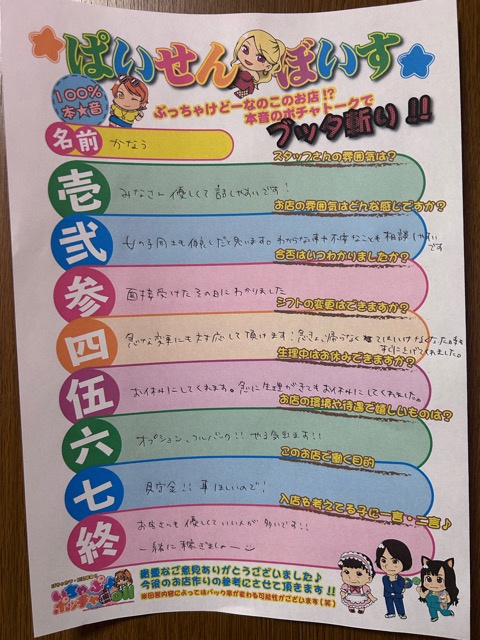 ぱいせんぼいす
100%
本★音
ぶっちゃけどーなのこのお店!?
本音のポチャトークで
ブッタ斬り!!
名前 かなう
スタッフさんの雰囲気は?
壱 みなさん優しくて話しやすいです!
お店の雰囲気はどんな感じですか?
弐 女の子同士も仲良しだと思います。わからない事や不安なことも相談しやすい
です
合否はいつわかりましたか?
参 面接受けたその日にわかりました
シフトの変更はできますか?
四 急な変更にも対応して頂けます!急きょ、帰らなくてはいけなくなった時も
すぐに上げてくれました。
生理中はお休みできますか?
伍 お休みにしてくれます。急に生理がきてもお休みにしてくれました。
お店の環境や待遇で嬉しいものは?
六 オプション、フルバック!!やる気出ます!!
このお店で働く目的
七 貯金!!車ほしいので!
入店を考えてる子に一言・二言♪
終 お客さんも優しくていい人が多いです!!
一緒に稼ぎましょー
貴重なご意見ありがとうございました♪
今後のお店作りの参考にさせて頂きます!!
※回答内容によってはバック率が変わる可能性がございます(笑)